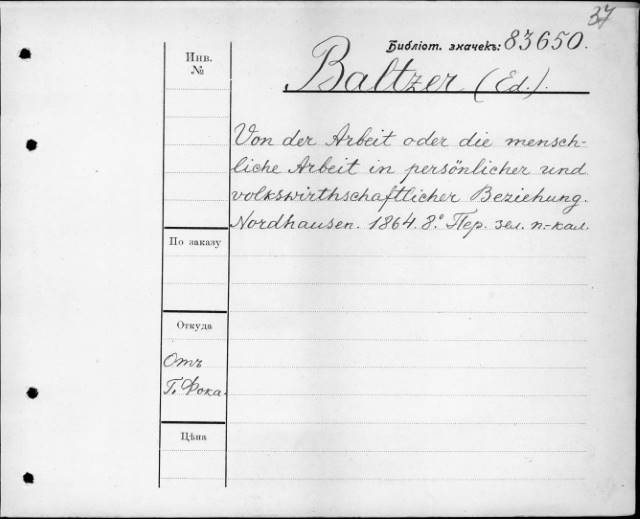 37
Библіот. значекъ: 83650.
Baltzer (Ed.).
Инв.
№
Von der Arbeit oder die mensch-
liche Arbeit in persönlicher und
volkswirthschaftlicher Beziehung.
Nordhausen. 1864. 8.° Пер. зел. п.-кал.
По заказу
Откуда
Отъ
Г. Фока.
Цѣна